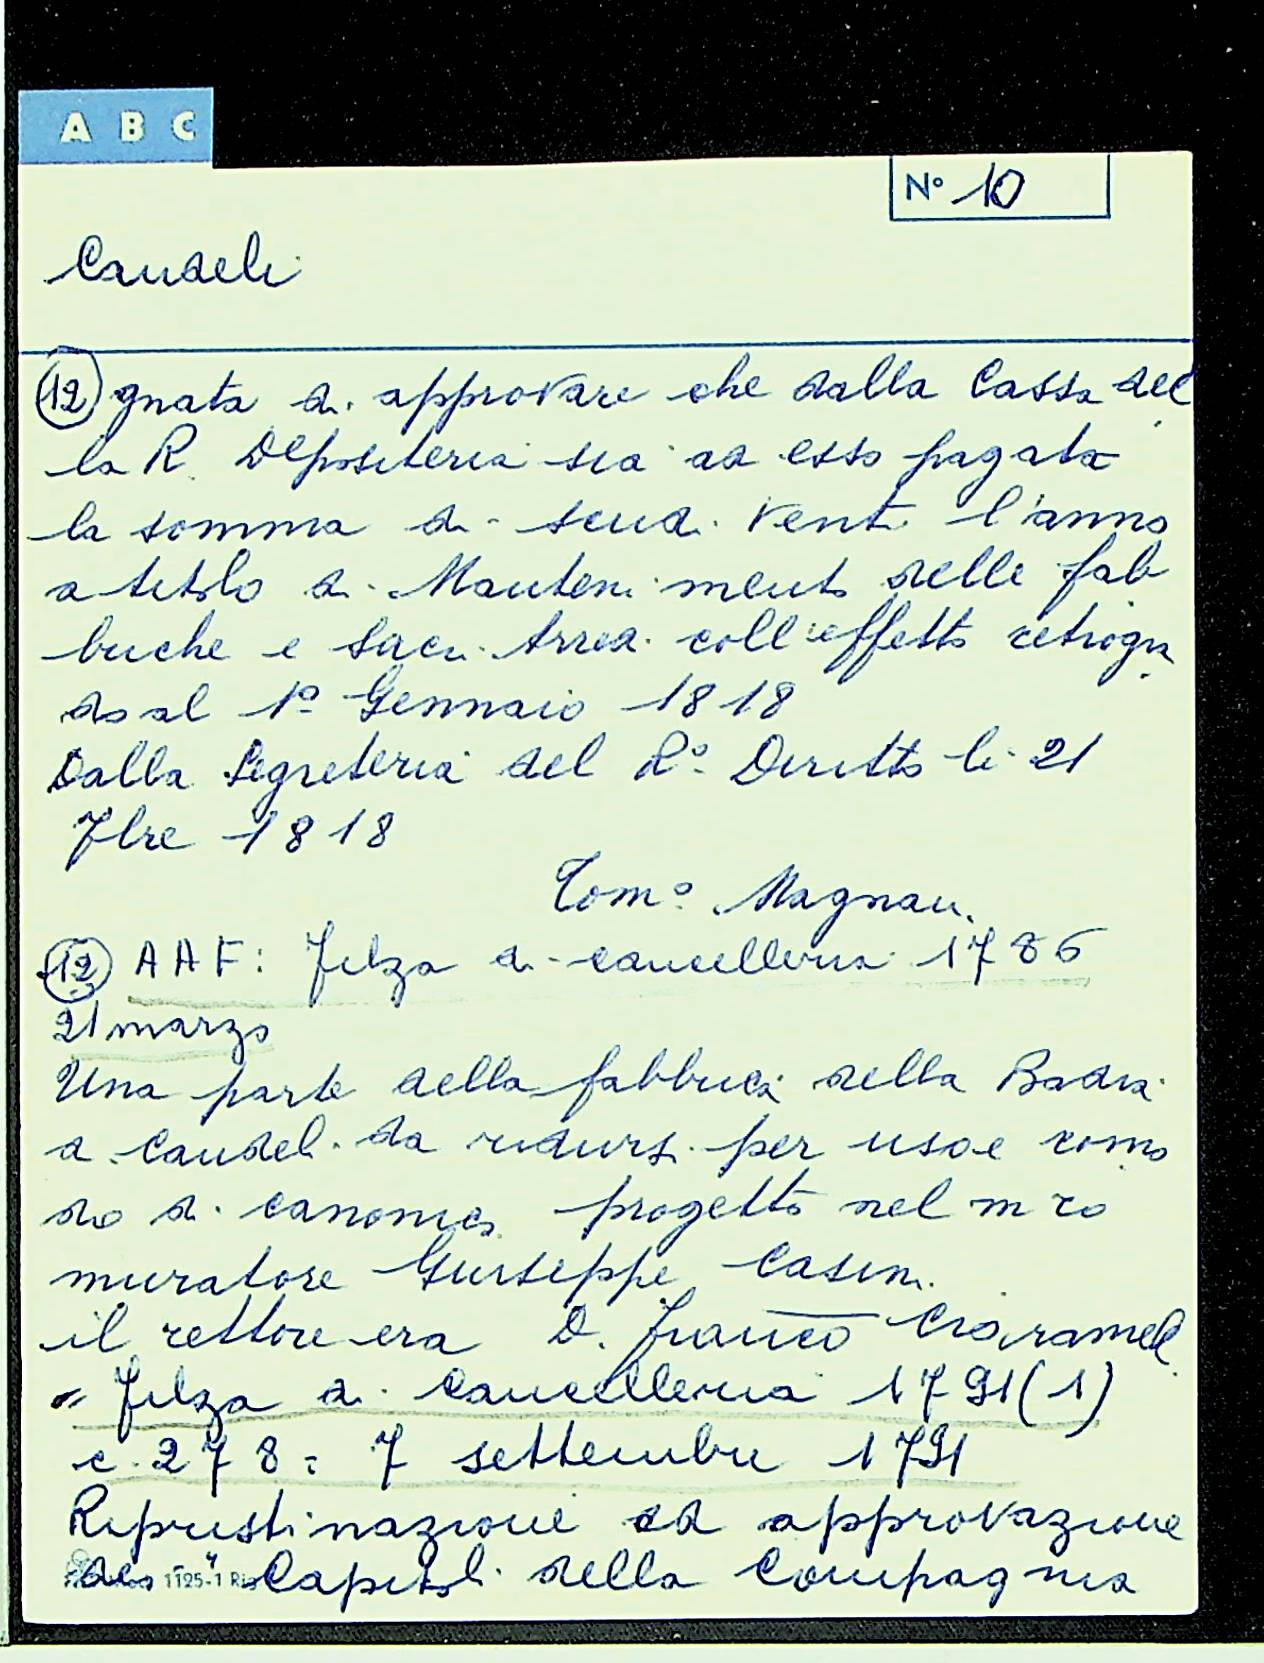 A B C
N° 10
Candeli
(12) gnata di approvare che dalla Cassa del
la R. Depositeria sia ad esso pagata
la somma di scudi venti l'anno
a titolo di Mantenimento delle fab
briche e Sacri Arredi coll'effetto retrogra
do al 1° Gennaio 1818
Dalla Segreteria del R° Diritto li 21
7bre 1818
Tom° Magnani
(12) AAF: Filza di cancelleria 1786
21 marzo
Una parte della fabbrica della Badia
a Candeli da ridursi per uso e como
do di canonica progetto nel m ro
muratore Giuseppe Casini
il rettore era D. Franco Ciaramel
" Filza di Cancelleria 1791 (1)
c. 278: 7 settembre 1791
Ripristinazione ed approvazione
dei Capitoli della Compagnia
1125-1